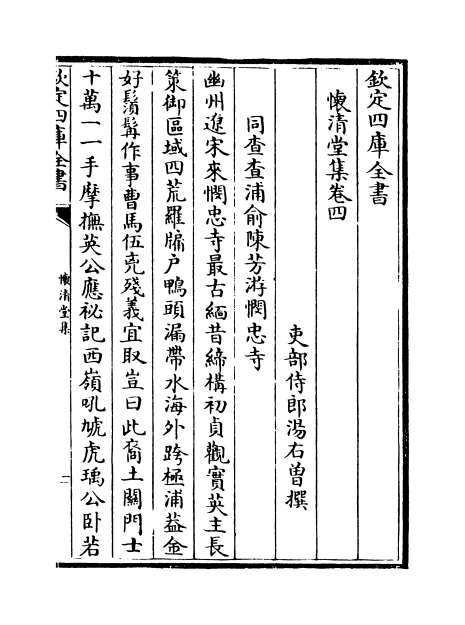 欽定四庫全書
懷清堂集卷四
吏部侍郎湯右曽撰
同查查浦俞陳芳游憫忠寺
幽州遼宋來憫忠寺最古緬昔締構初貞觀實英主長
策御區域四荒羅牖户鴨頭漏帶水海外跨極浦益金
好鬚髯作事曹馬伍兇殘義宜取豈曰此裔土關門士
十萬一一手摩撫英公應祕記西嶺吼虓虎瑀公卧若
欽定四庫全書
懷清堂集
一